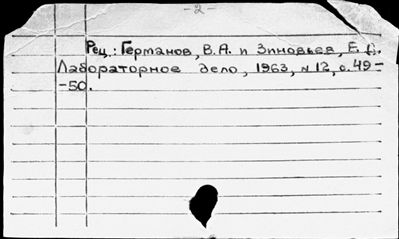 -2-
Рец.: Германов, В.А. и Зиновьев, Е. Г.
Лабораторное дело, 1963, №12, с.49-
-50.